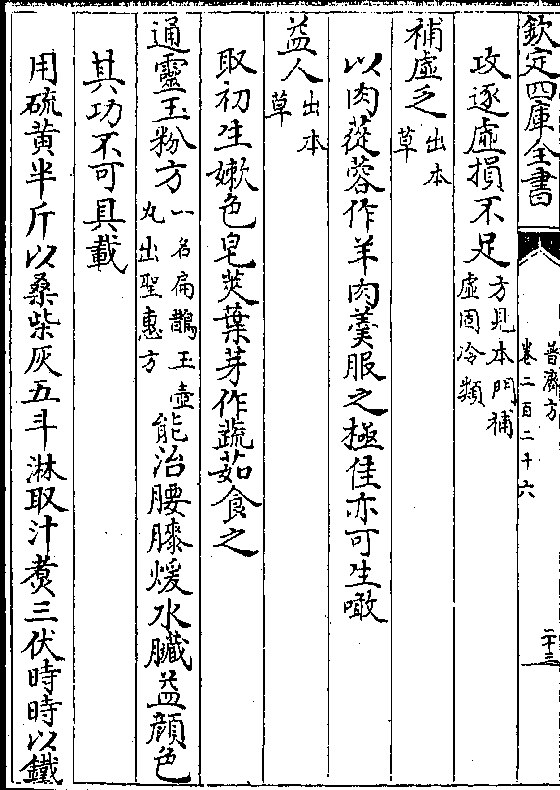 欽定四庫全書
普濟方
卷二百二十六
二十三
攻逐虛損不足方見本門補虛固冷類
補虛乏出本草
以肉蓯蓉作羊肉羹服之極佳亦可生噉
益人出本草
取初生嫰色皂莢葉芽作蔬茹食之
通靈玉粉方一名扁鵲玉壺丸出聖惠方能治腰膝煖水臓益顔色
其功不可具載
用硫黄半斤以桑柴灰五斗淋取汁煑三伏時時以鐵